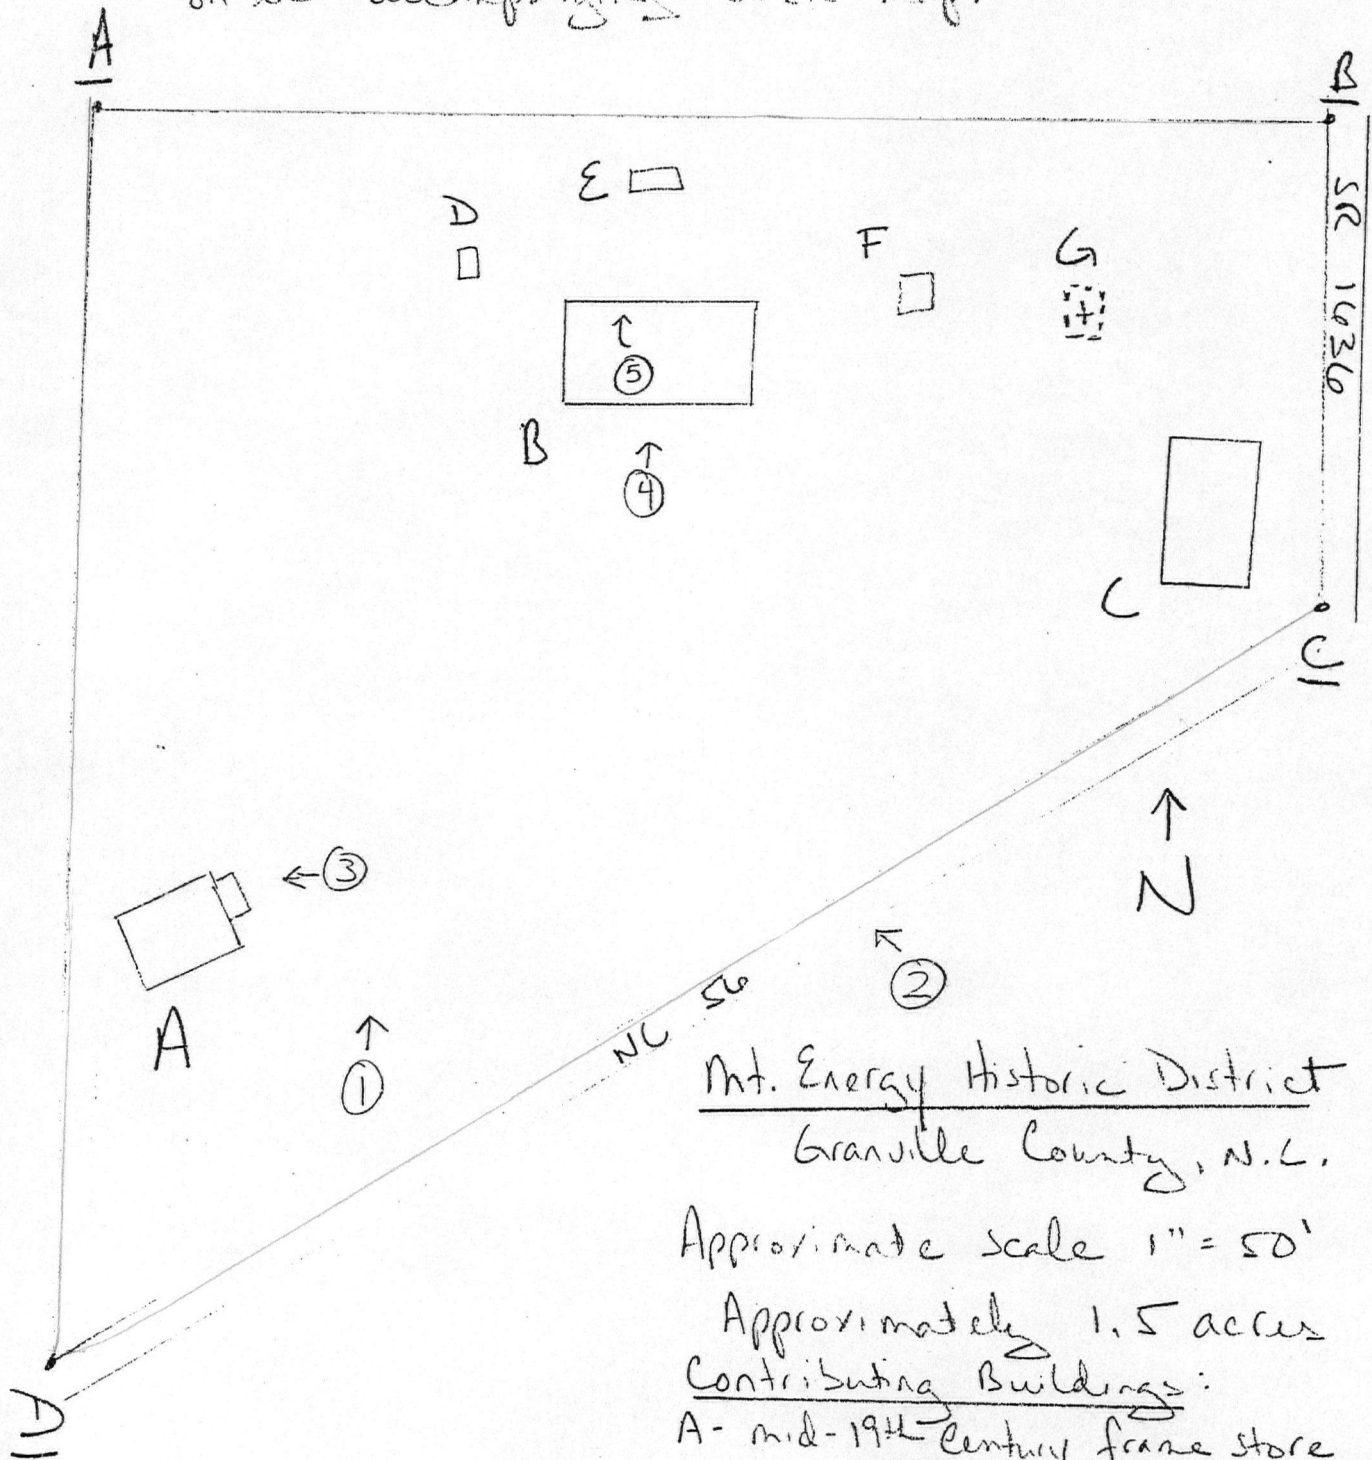 A
B
SR 1636
E
D
F
G
⑤
B
④
C
C
③
N
A
②
①
NC 56
Mt. Energy Historic District
Granville County, N.C.
Approximate scale 1" = 50'
Approximately 1.5 acres
D
Contributing Buildings:
A- mid-19th Century frame store